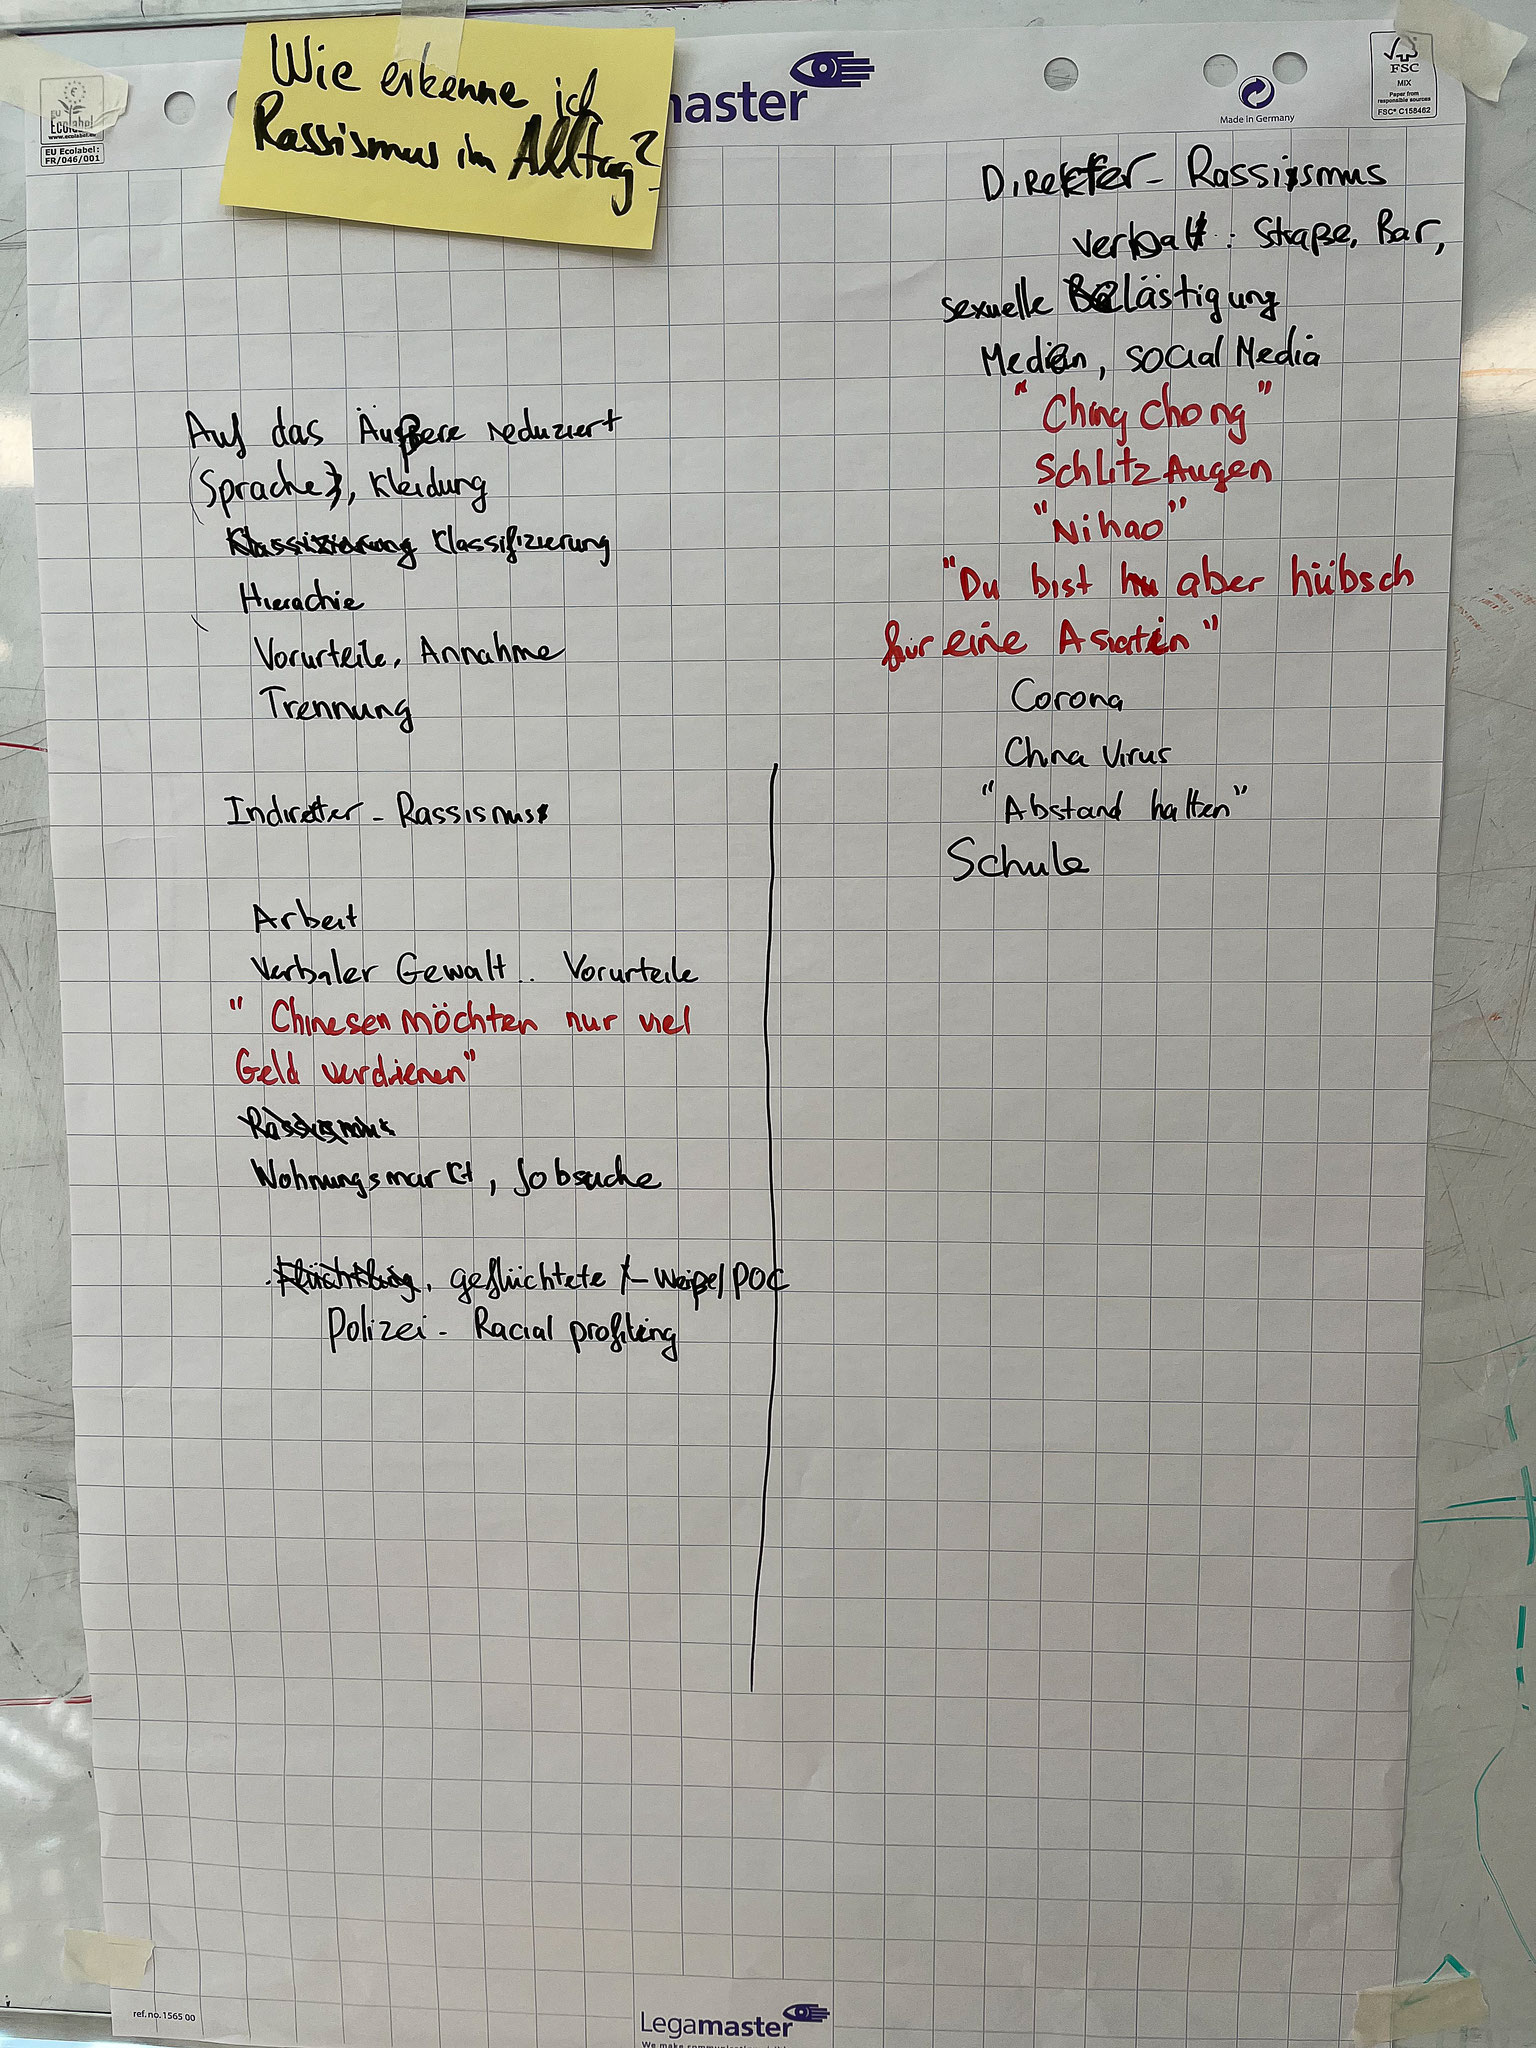 Wie erkenne ich
Rassismus im Alltag?
master
Ecolabel
www.ecolabel.eu
EU Ecolabel:
FR/046/001
Made in Germany
FSC
MIX
Paper from
responsible sources
FSC® C158462
Auf das Äußere reduziert
(Sprache), Kleidung
Klassizierung Klassifizierung
Hierachie
Vorurteile, Annahme
Trennung
Indirekter - Rassismus
Arbeit
Verbaler Gewalt .. Vorurteile
"Chinesen möchten nur viel
Geld verdienen"
Rassismus
Wohnungsmarkt, Jobsuche
geflüchtete - weiße/POC
Polizei - Racial profiling
Direkter - Rassismus
verbal : Straße, Bar,
sexuelle Belästigung
Medien, social Media
"Ching Chong"
Schlitz Augen
"Nihao"
"Du bist aber hübsch
für eine Asiatin"
Corona
China Virus
"Abstand halten"
Schule
ref.no.1565 00
Legamaster